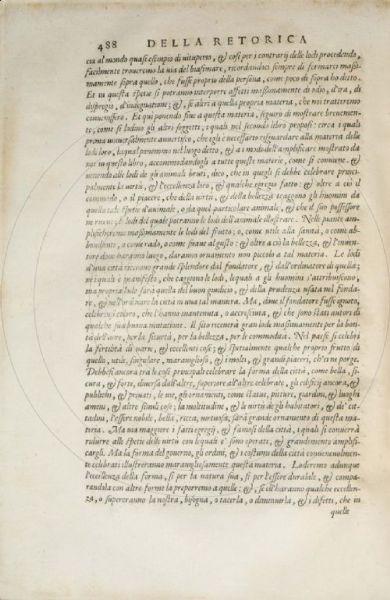 488 DELLA RETORICA
cia al mondo quasi essempio di vituperio, & così per i contrarij delle lodi procedendo,
facilmente troveremo la via del biasimare, ricordandoci sempre di fermarci massi-
mamente sopra quello, che fusse proprio della persona, come poco di sopra ho ditto.
Et in questa spetie si potranno interporre affetti massimamente di odio, d'ira, di
dispregio, d'indegnatione; &, se altri a quella propria materia, che noi tratteremo
convenissero. Et qui ponendo fine a questa materia, seguirò di mostrare brevemen-
te, come si lodino gli altri soggetti, i quali nel secondo libro proposi: circa i quali
prima universalmente avvertisco, che egli è necessario risguardare alla materia delle
lodi loro, la qual ponemmo nel luogo detto, & a i modi dell'amplificare mostrato da
noi in questo libro, accommodandogli a tutte queste materie, come si conviene. &
venendo alle lodi de gli animali bruti, dico, che in quegli si debbe celebrare princi-
palmente la virtù, & l'eccellenza loro, & qualche egregio fatto: & oltre a ciò il
commodo, o il piacere, che della virtù, & della bellezza traggono gli huomini da
quella tale spetie d'animale, o da quel particolare animale, & che il suo possessore
ne riceve; le lodi del quale potranno le lodi dell'animale illustrare. Nelle piante am-
plificheremo massimamente le lodi del frutto; o, come utile alla sanità, o come ab-
bondante, o come rado, o come soave al gusto: & oltre a ciò la bellezza, & l'inven-
tore dove haranno luogo, daranno ornamento non piccolo a tal materia. Le lodi
d'una città ricevono grande splendore dal fondatore, & dall'ordinatore di quella;
ne i quali è manifesto, che caggiono le lodi, le quali a gli huomini s'attribuiscono,
ma propria lode sarà quella del buon giudicio, & della prudenza usata nel fonda-
re, & nell'ordinare la città in una tal maniera. Ma, dove il fondatore fusse ignoto,
celebrinsi coloro, che l'hanno mantenuta, o accresciuta, & che sono stati autori di
qualche sua buona mutatione. Il sito riceverà gran lode massimamente per la bon-
tà dell'aere, per la sicurtà, per la bellezza, per le commodità. Nel paese si celebri
la fertilità di varie, & eccellenti cose; & spetialmente qualche proprio frutto di
quello, utile, singulare, maraviglioso, & i molti, & grandi piaceri, ch'ei ne porge.
Debbesi ancora tra le cose principali celebrare la forma della città, come bella, si-
cura, & forte, diversa dall'altre, superiore all'altre celebrate, gli edificij ancora, &
publichi, & privati, le vie, gli ornamenti, come statue, pitture, giardini, & luoghi
ameni, & altre simili cose; la moltitudine, & le virtù de gli habitatori, & de' cit-
tadini, l'essere nobile, bella, ricca, virtuosa, sarà grande ornamento di questa ma-
teria. Ma via maggiore i fatti egregij, & famosi della città, i quali si converrà
ridurre alle spetie delle virtù con le quali e' sono operati, & grandemente amplifi-
cargli. Ma la forma del governo, gli ordini, & i costumi della città convenevolmen-
te celebrati illustreranno maravigliosamente questa materia. Loderemo adunque
l'eccellenza della forma, sì per la natura sua, sì per l'essere durabile, & compa-
randola con altre forme la preporremo a quelle: &, se elle haranno qualche eccellen-
za, o supereranno la nostra, bisogna, o tacerla, o diminuirla, & i difetti, che in
quelle